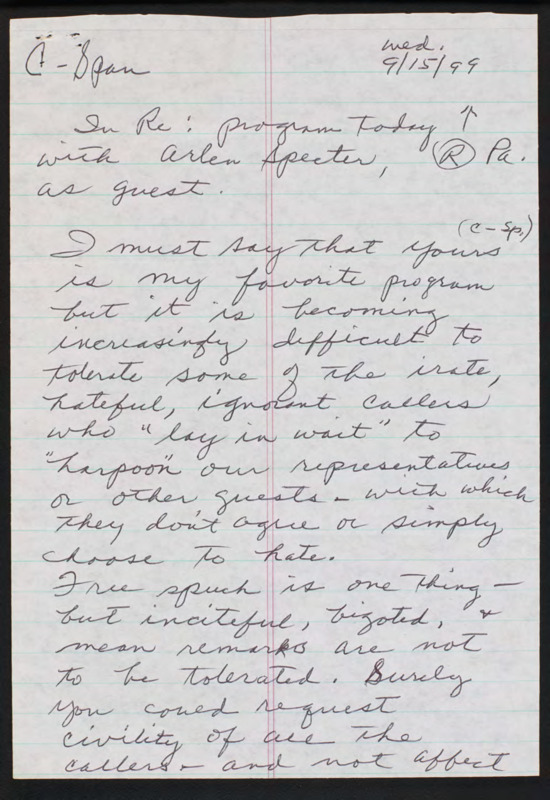 C-Span
wed.
9/15/99
In Re: program today ↑
with Arlen Specter, Ⓡ Pa.
as guest.
(C-Sp.)
I must say that yours
is my favorite program
but it is becoming
increasingly difficult to
tolerate some of the irate,
hateful, ignorant callers
who "lay in wait" to
"harpoon" our representatives
or other guests - with which
they don't agree or simply
choose to hate.
Free speech is one thing -
but inciteful, bigoted, &
mean remarks are not
to be tolerated. Surely
you could request
civility of all the
callers - and not affect